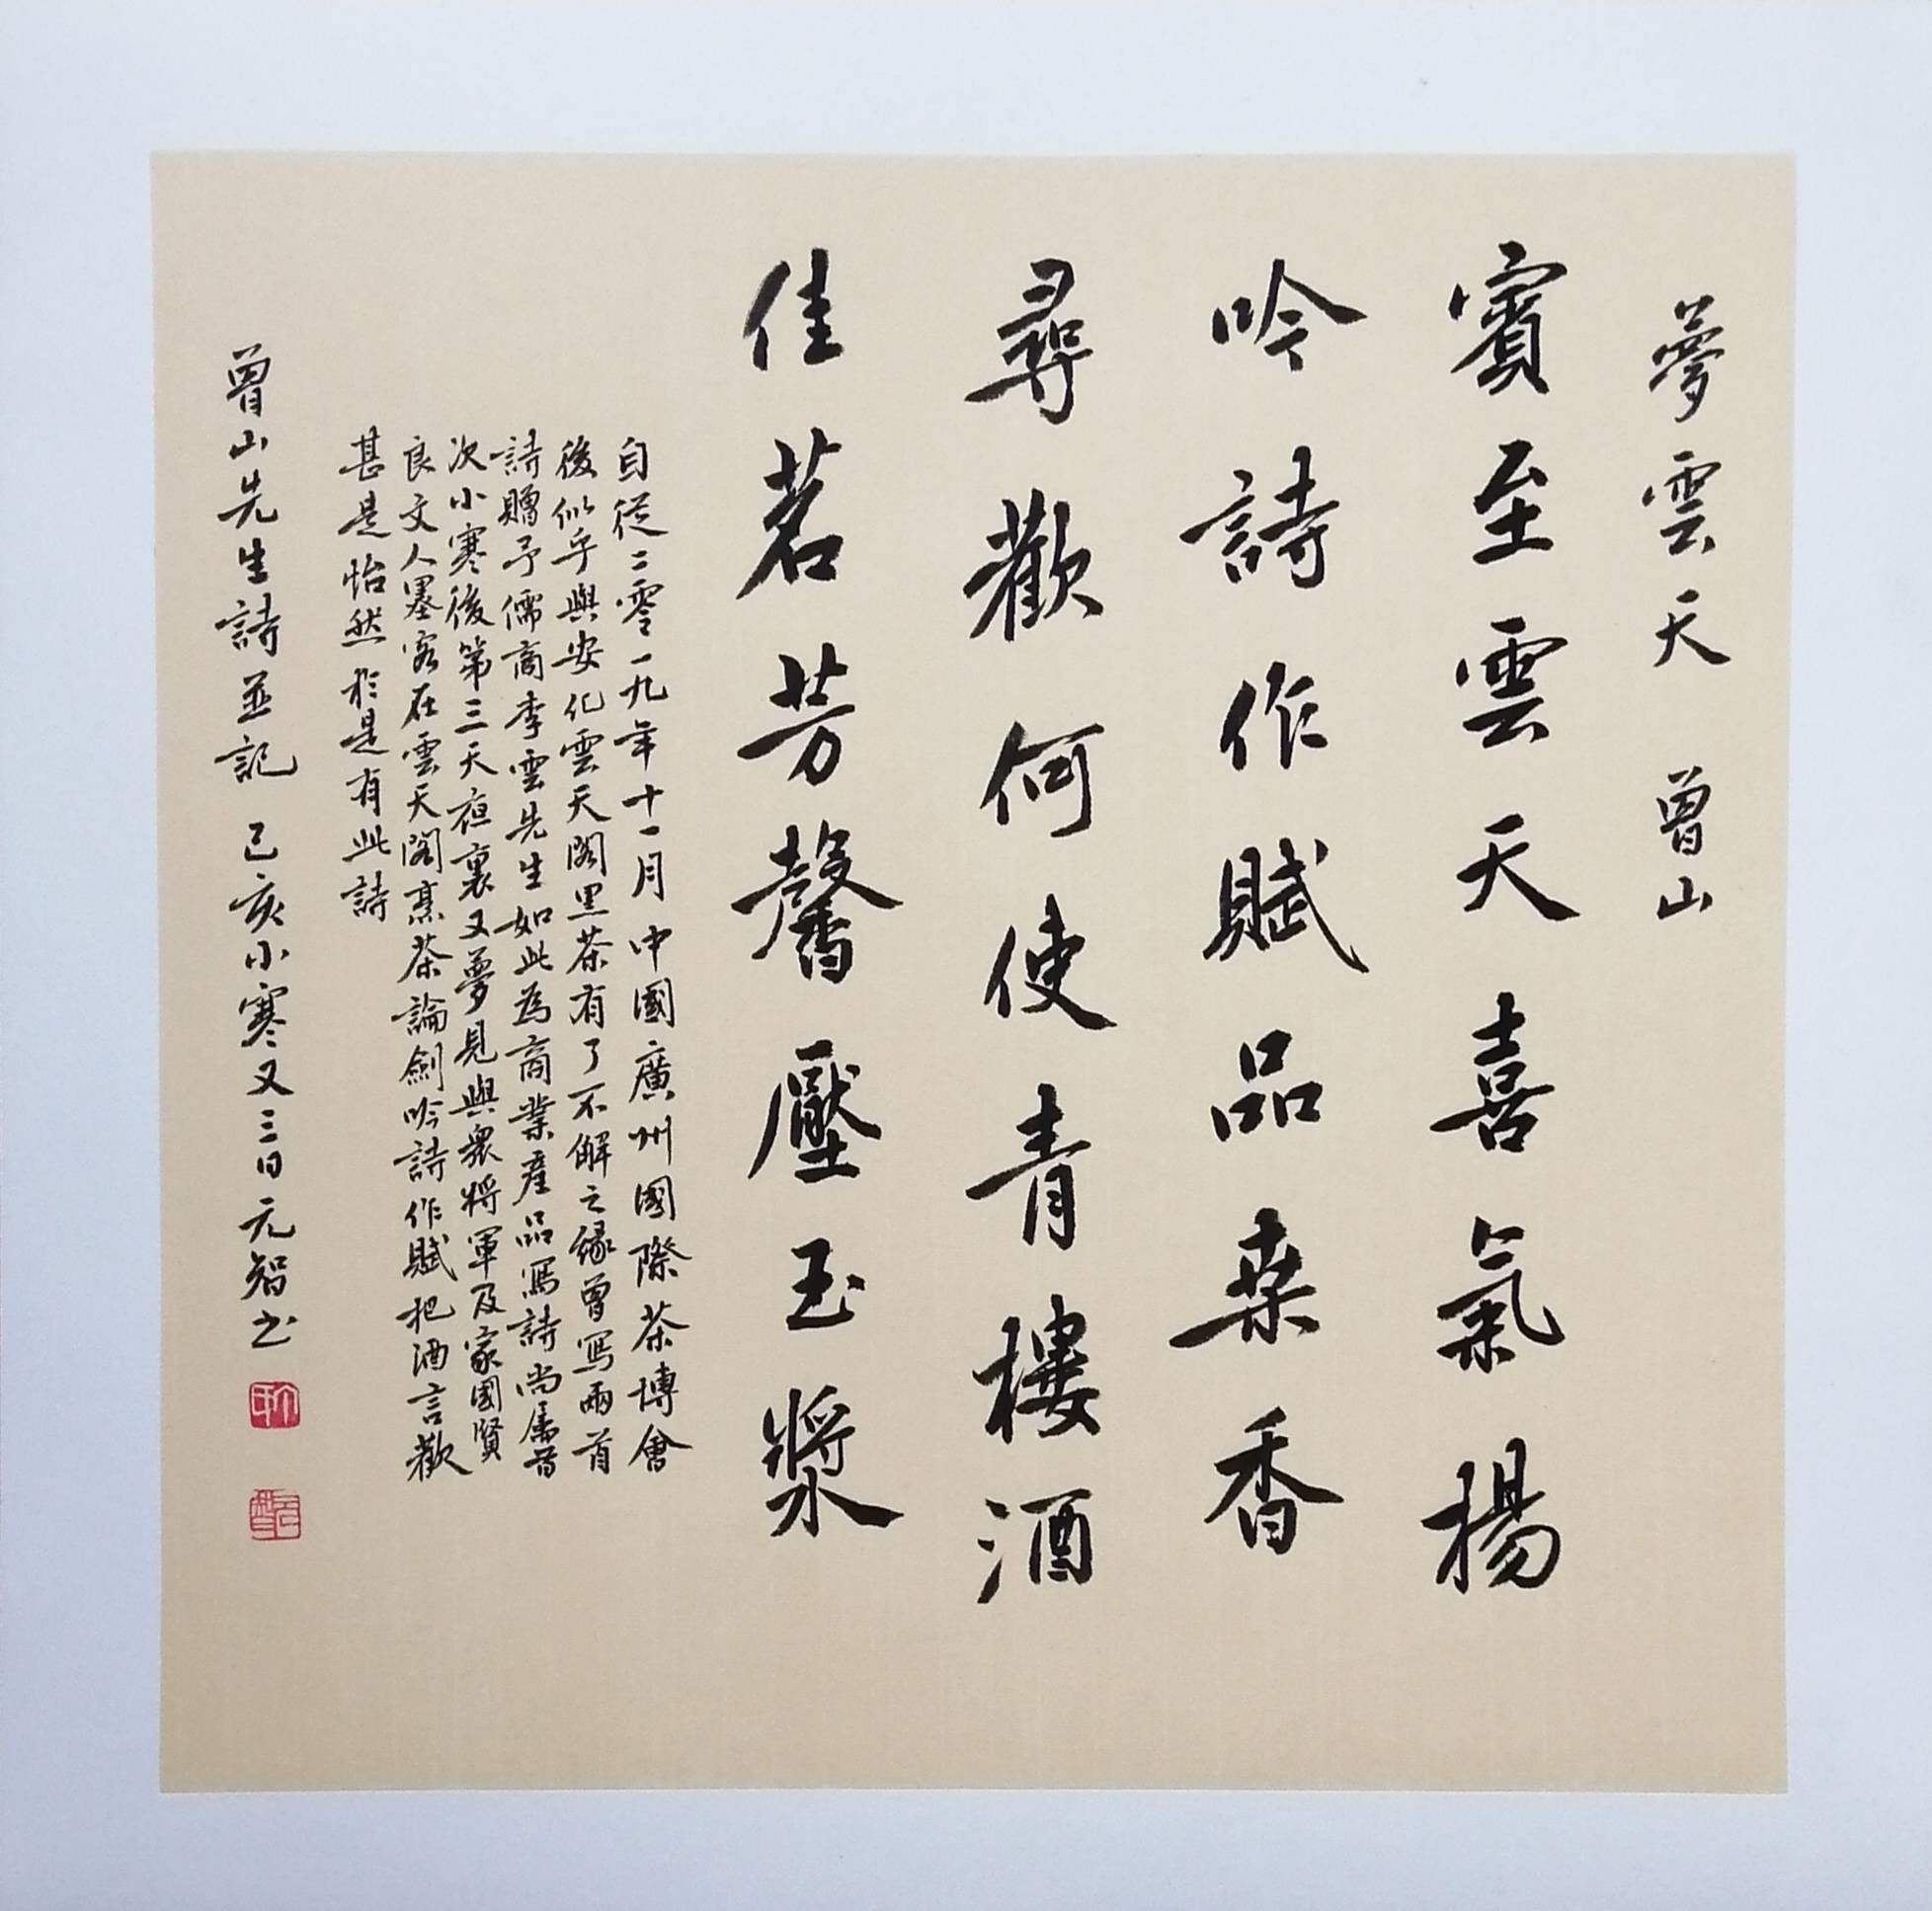 夢雲天 曾山
賓至雲天喜氣揚
吟詩作賦品桒香
尋歡何使青樓酒
佳茗芳馨壓玉漿
自從二零一九年十一月中國廣州國際茶博會
後似乎與安化雲天閣黑茶有了不解之緣曾写兩首
詩贈予儒商李雲先生如此為商業産品写詩尚属首
次小寒後第三天夜裏又夢見與衆將軍及家國賢
良文人墨客在雲天閣烹茶論劍吟詩作賦把酒言歡
甚是怡然於是有此詩
曾山先生詩並記 己亥小寒又三日元智书